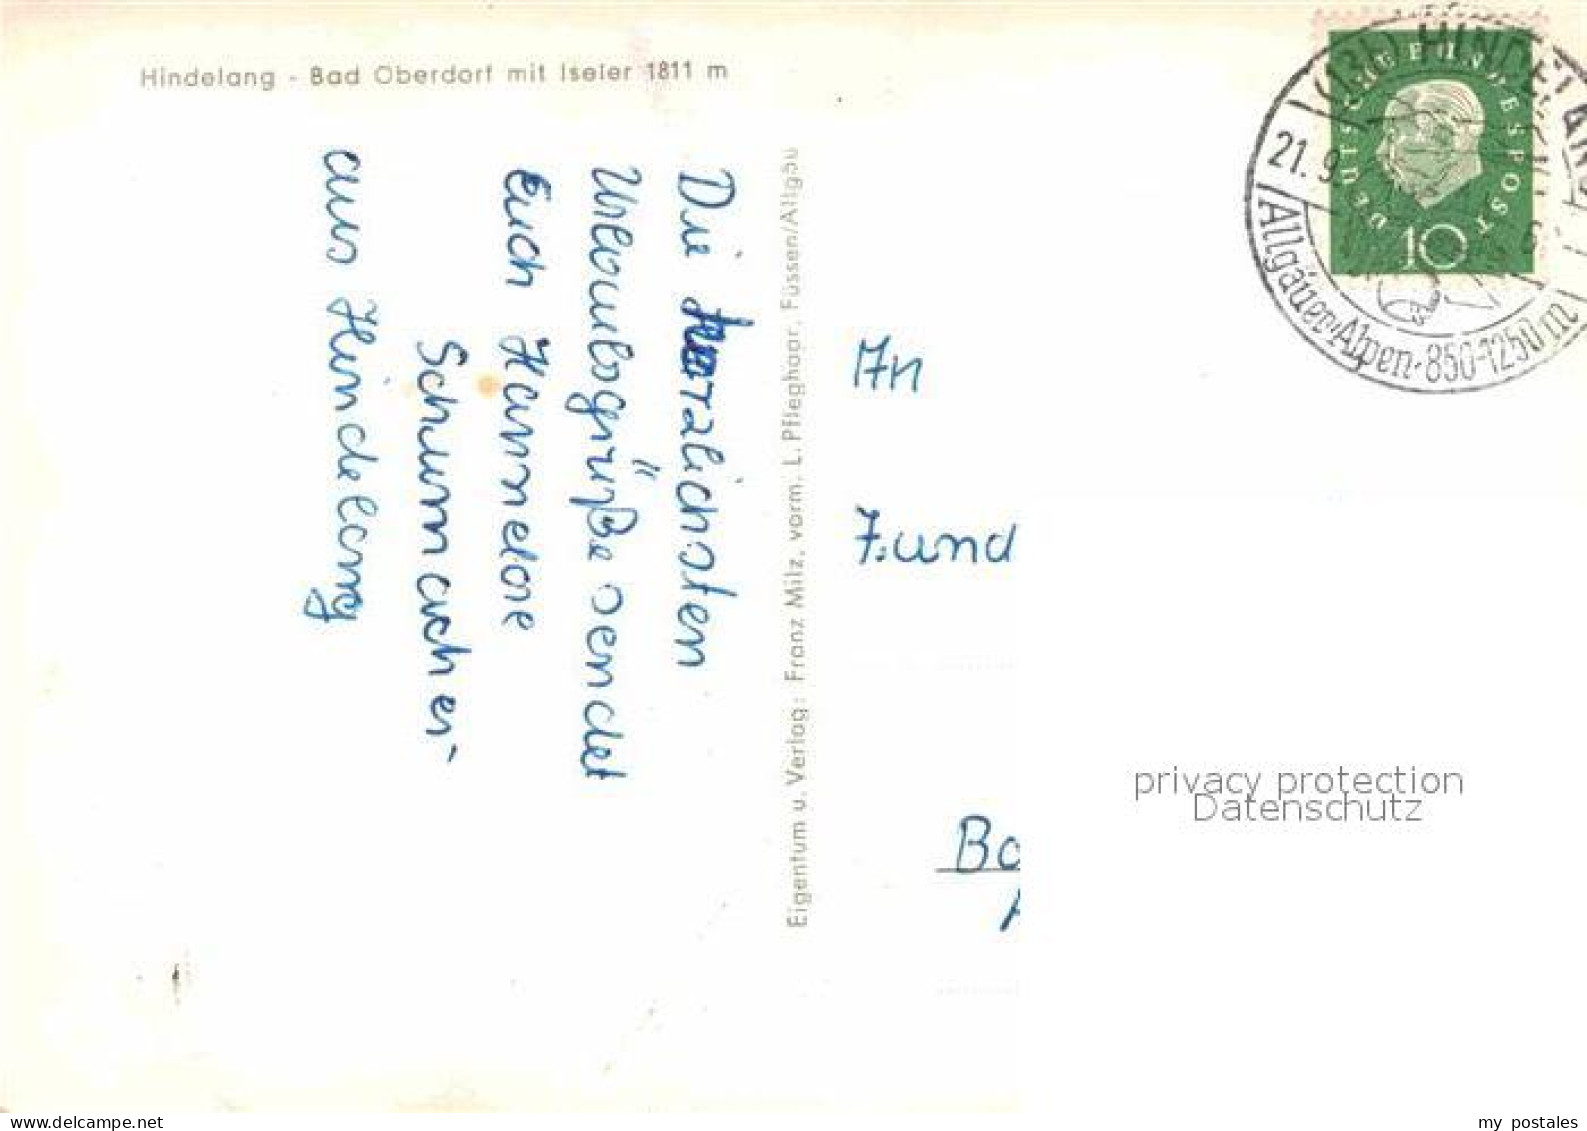 Hindelang - Bad Oberdorf mit Iseler 1811 m
Die herzlichsten
Urlaubsgrüße sendet
Euch Hannelore
Schumacher
aus Hindelang
Eigentum u. Verlag: Franz Milz, vorm. L. Pfleghaar, Füssen/Allgäu
DEUTSCHE BUNDESPOST
10
(13b) HINDELANG
21.9.
Allgäuer-Alpen-850-1250m
An
F.und
privacy protection
Datenschutz
delcampe.net
my postales